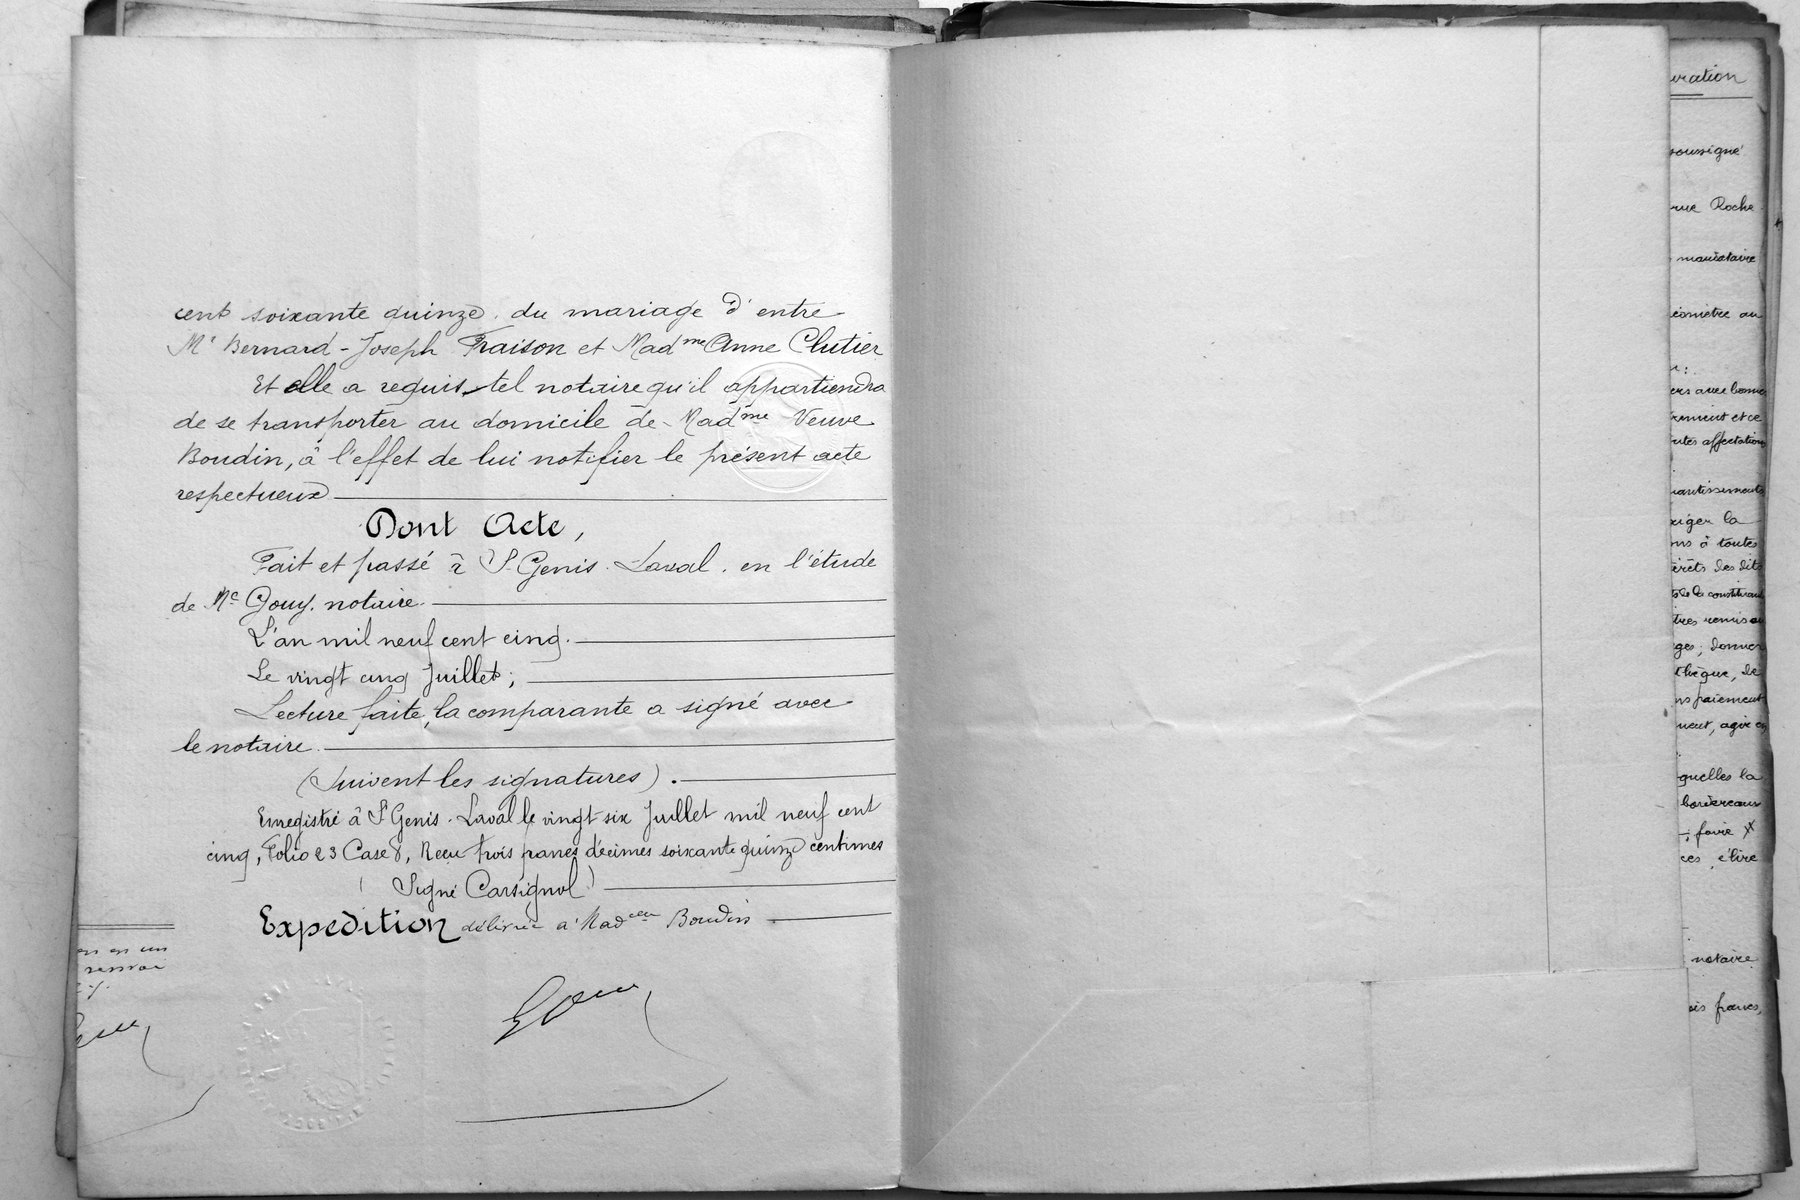 cent soixante quinze, du mariage d'entre
Mr Bernard-Joseph Fraison et Madme Anne Clutier
Et elle a requis tel notaire qu'il appartiendra
de se transporter au domicile de Madme Veuve
Boudin, à l'effet de lui notifier le présent acte
respectueux
Dont Acte,
Fait et passé à St Genis-Laval, en l'étude
de Me Gouy, notaire.
L'an mil neuf cent cinq.
Le vingt cinq Juillet;
Lecture faite, la comparante a signé avec
le notaire.
(Suivent les signatures).
Enregistré à St Genis-Laval le vingt six Juillet mil neuf cent
cinq, Folio 23 Case 8, Reçu trois francs décimes soixante quinze centimes
(Signé Carsignol)
Expedition délivrée à Madelle Boudin
en un
renvoi
uration
soussigné
rue Roche
mandataire
au
avec bonne
et ce
affectations
nantissements
xiger la
ns à toutes
érêts des dits
de la constituante
tres remis ou
ges; donner
thèque, de
ns paiement
ment, agir en
quelles la
bordereaux
, faire
ces, élire
notaire
ois francs,